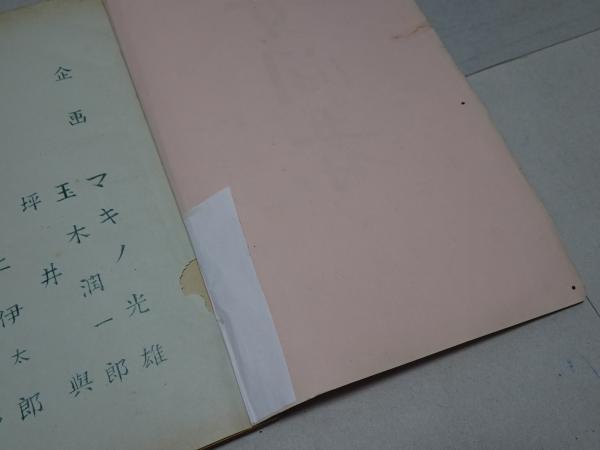 企画
マキノ光雄
玉木潤一郎
坪井與
伊太郎